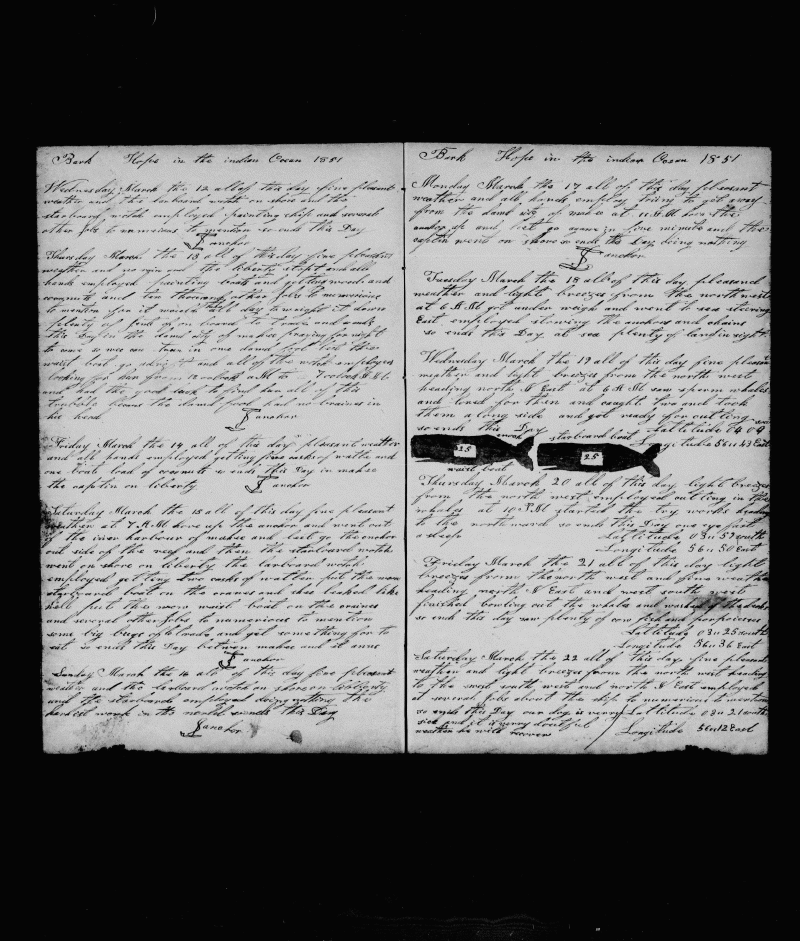 Bark Hope in the indian Ocean 1851
Wednesday March the 12 all of this day fine pleasant
weather and the larboard watch on shore and the
starboard watch employed painting ship and several
other jobs to numerious to mention so ends this Day
anchor
Thursday March the 13 all of this day fine pleasant
weather and no rain and the liberty stopt and all
hands employed painting boats and getting woods and
coconuts and ten thousand other jobs to numerious
to mention for it would take all day to wright it down
plenty of fruit on board so ends
this Day in the damd city of mahee
to come so we can
waist boat go and all of the watch employed
looking for them from
and had the good luck to find them all of this
trouble because the damd fool had no braines in
his head
anchor
Friday March the 14 all of this day pleasant weather
and all hands employed getting five casks of watter and
one boats load of coconuts so ends this Day in mahee
the captin on liberty anchor
Saturday March the 15 all of this day fine pleasant
weather at 7 A.M hove up the anchor and went out
of the iner harbour of mahee and let go the anchor
out side of the reef and then the starboard watch
went on shore on liberty the larboard watch
employed getting two casks of watter put the worn
starboard boat on the cranes and she looked like
hell put the worn waist boat on the craines
and several other jobs to numerious to mention
some big bugs of aboard and got something for to
eat so ends this Day between mahee and st anne
anchor
Sunday March the 16 all of this day fine pleasant
weather and the larboard watch on shore on liberty
and the starboards employed doing nothing the
hardest work in the world so ends this Day
anchor
Bark Hope in the indian Ocean 1851
Monday March the 17 all of this day pleasant
weather and all hands employ trying to get away
from the damd city of mahee at 11 A.M hove the
anchor up and let go again in five minuts and the
captin went on shore so ends this Day doing nothing
anchor
Tuesday March the 18 all of this day pleasand
weather and light breezes from the northwest
at 6 A.M got under weigh and went to sea steering
East employed stowing the anchors and chains
so ends this Day at sea plenty of land in sight
Wednesday March the 19 all of this day fine pleasant
weather and light breezes from the north west
heading north N East at 6 A M saw sperm whales
and lored for them and caught two and took
them a long side and got ready for cutting
so ends this Day Lattitude 04 09
starboard boat Longitude 56 u 43 East
25
25
waist boat
Thursday March 20 all of this day light breezes
from the north west employed cutting in the
whales at 10 P.M started the try works heading
to the north ward so ends this Day one eye fast
a sleep Lattitude 03 u 57 south
Longitude 56 u 50 East
Friday March the 21 all of this day light
breezes from the north west and fine weather
heading north N East and west south west
finished bowling out the whales and washed the decks
so ends this day saw plenty of cow fish and porpoises
Lattitude 03 u 25 south
Longitude 56 u 36 East
Saturday March the 22 all of this day fine pleasant
weather and light breezes from the north west heading
to the west south west and north N East employed
at several jobs about the ship to numerious to mention
so ends this Day our dog is verry Lattitude 03 u 21 south
sick and it is verry doubtful
weather he will recover Longitude 56 u 12 East